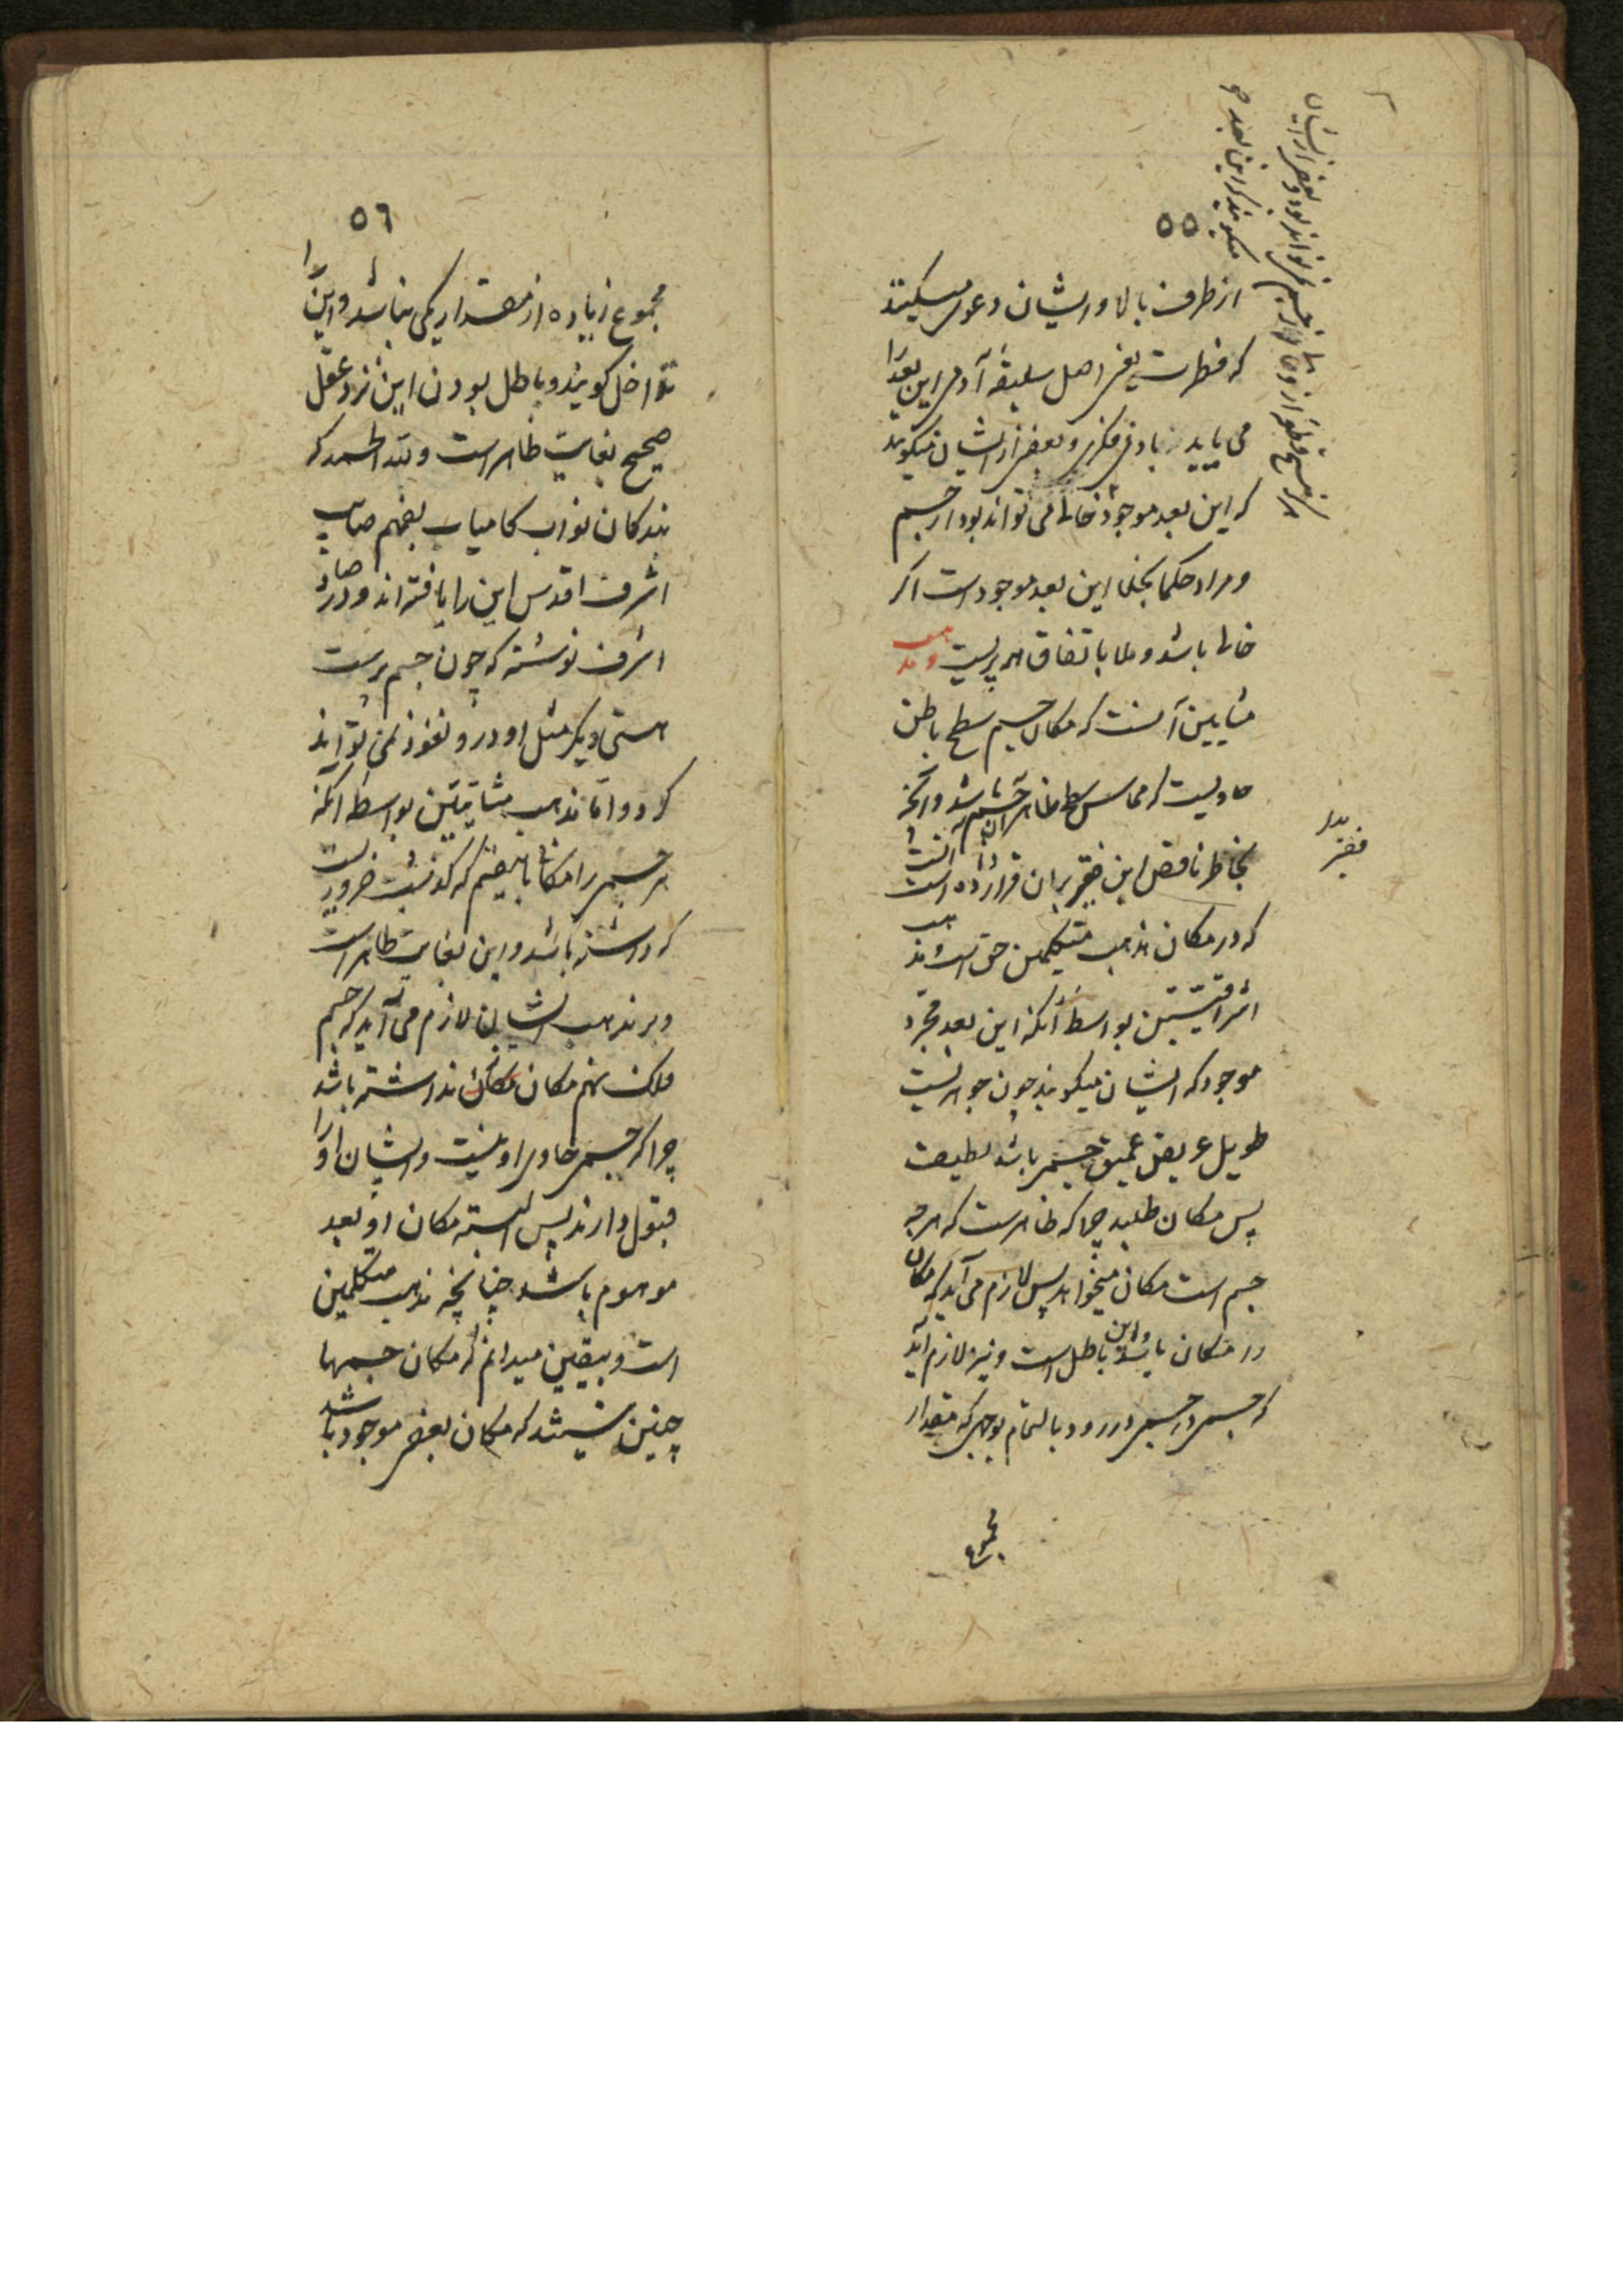 ۵۵
از طرف بالا و ایشان دعوی میکنند
که فطرت یعنی اصل سلیقه آدمی این بعد را
می یابد بی زیادتی فکری و بعضی از ایشان میگویند
که این بعد موجود خالی می تواند بود از جسم
و مراد حکما بخلا این بعد موجود است اگر
خالی باشد و ملا باتفاق امریست و مذهب
مشایین آنست که مکان جسم سطح باطن
حاویست که مماس سطح ظاهر آن جسم باشد و آنچه
بخاطر ناقص این فقیر بدان قرار داده است آنست
که در مکان مذهب متکلمین حق است و مذهب
اشراقیین بواسطه آنکه این بعد مجرد
موجود که ایشان میگویند چون جوهریست
طویل عریض عمیق جسمی باشد لطیف
پس مکان طلبد چرا که ظاهرست که هر چه
جسم است مکان میخواهد پس لازم می آید که مکان
در مکان باشد و این باطل است و نیز لازم آید
که جسمی در جسمی در رود بالتمام بوجهی که مقدار
مجموع
میگویند که این بعد
جسم نمی تواند بود و بعضی از ایشان
۵۶
مجموع زیاده از مقدار یکی نباشد و این را
تداخل گویند و باطل بودن این نزد عقل
صحیح بغایت ظاهر است و لله الحمد که
بندگان نواب کامیاب بفهم صایب
اشرف اقدس این را یافته اند و در
اشرف نوشته که چون جسم پرست
هستی دیگر مثل او درو نفوذ نمی تواند
کرد و اما مذهب مشائیین بواسطه آنکه
هر جسمی را مکانی بآن معنی که گذشت ضروریست
که داشته باشد و این بغایت ظاهر است
و بر مذهب ایشان لازم می آید که جسم
فلک نهم مکان نداشته باشد
چرا که جسمی حاوی او نیست و ایشان او را
قبول دارند پس البته مکان او بعد
موهوم باشد چنانچه مذهب متکلمین
است و بیقین میدانم که مکان جسمها
چنین نیستند که مکان بعضی موجود باشد